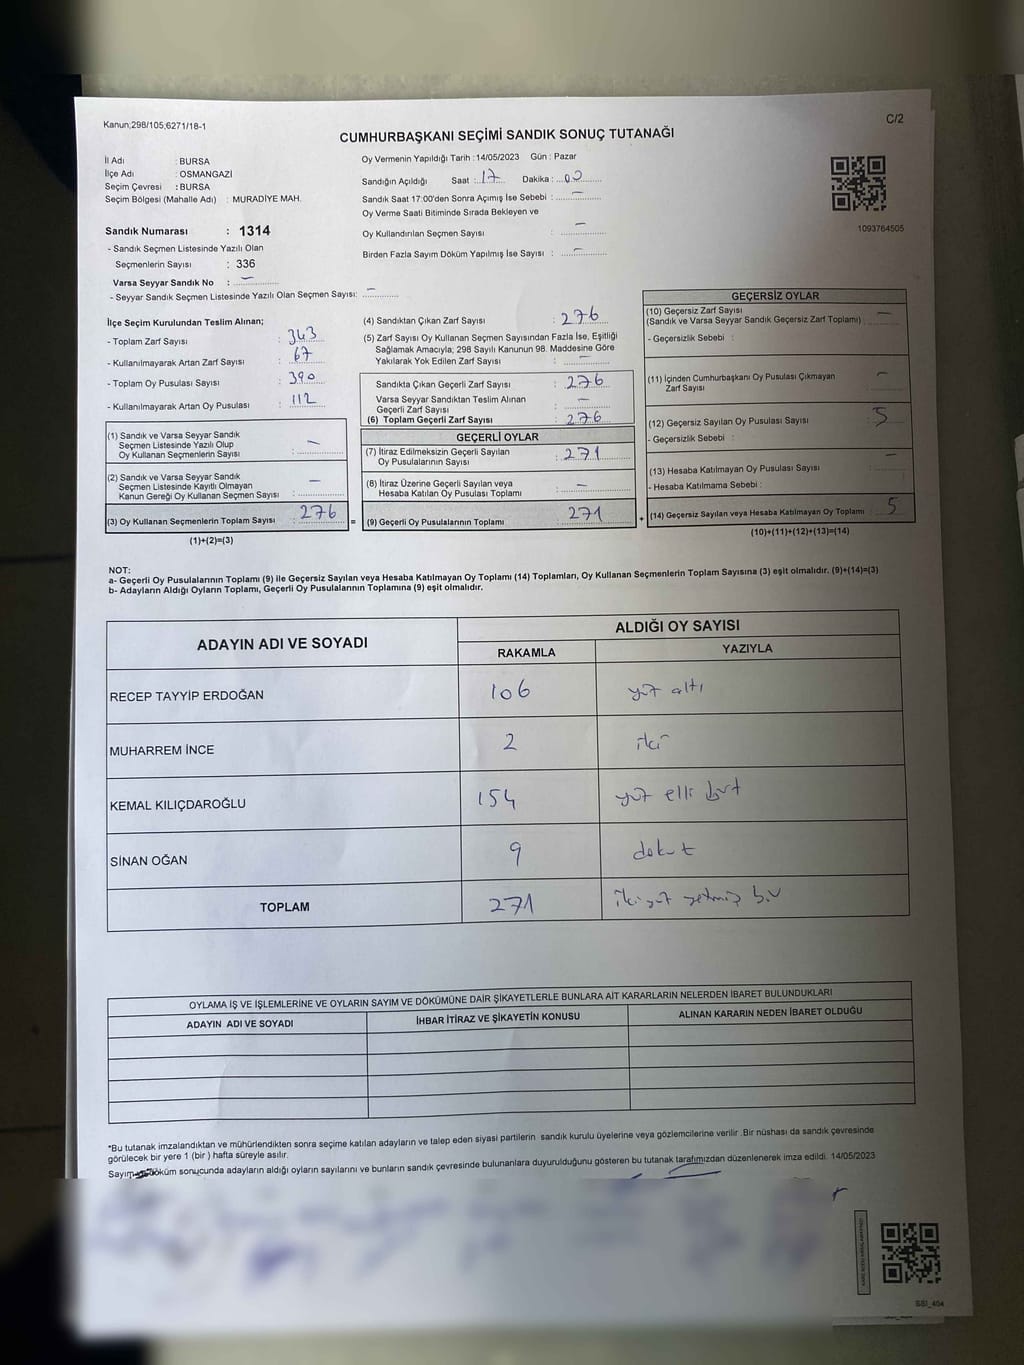 Kanun;298/105;6271/18-1
C/2
CUMHURBAŞKANI SEÇİMİ SANDIK SONUÇ TUTANAĞI
İl Adı : BURSA
İlçe Adı : OSMANGAZİ
Seçim Çevresi : BURSA
Seçim Bölgesi (Mahalle Adı) : MURADİYE MAH.
Oy Vermenin Yapıldığı Tarih : 14/05/2023 Gün : Pazar
Sandığın Açıldığı Saat : 17 Dakika : 00
Sandık Saat 17:00'den Sonra Açımış İse Sebebi : —
Oy Verme Saati Bitiminde Sırada Bekleyen ve
Oy Kullandırılan Seçmen Sayısı : —
Birden Fazla Sayım Döküm Yapılmış İse Sayısı : —
1093764505
Sandık Numarası : 1314
- Sandık Seçmen Listesinde Yazılı Olan
Seçmenlerin Sayısı : 336
Varsa Seyyar Sandık No : —
- Seyyar Sandık Seçmen Listesinde Yazılı Olan Seçmen Sayısı: —
İlçe Seçim Kurulundan Teslim Alınan;
- Toplam Zarf Sayısı : 343
- Kullanılmayarak Artan Zarf Sayısı : 67
- Toplam Oy Pusulası Sayısı : 390
- Kullanılmayarak Artan Oy Pusulası : 112
(1) Sandık ve Varsa Seyyar Sandık
Seçmen Listesinde Yazılı Olup
Oy Kullanan Seçmenlerin Sayısı : —
(2) Sandık ve Varsa Seyyar Sandık
Seçmen Listesinde Kayıtlı Olmayan
Kanun Gereği Oy Kullanan Seçmen Sayısı : —
(3) Oy Kullanan Seçmenlerin Toplam Sayısı : 276
(1)+(2)=(3)
(4) Sandıktan Çıkan Zarf Sayısı : 276
(5) Zarf Sayısı Oy Kullanan Seçmen Sayısından Fazla İse, Eşitliği
Sağlamak Amacıyla; 298 Sayılı Kanunun 98. Maddesine Göre
Yakılarak Yok Edilen Zarf Sayısı : —
Sandıkta Çıkan Geçerli Zarf Sayısı : 276
Varsa Seyyar Sandıktan Teslim Alınan
Geçerli Zarf Sayısı : —
(6) Toplam Geçerli Zarf Sayısı : 276
GEÇERLİ OYLAR
(7) İtiraz Edilmeksizin Geçerli Sayılan
Oy Pusulalarının Sayısı : 271
(8) İtiraz Üzerine Geçerli Sayılan veya
Hesaba Katılan Oy Pusulası Toplamı : —
=
(9) Geçerli Oy Pusulalarının Toplamı : 271
+
GEÇERSİZ OYLAR
(10) Geçersiz Zarf Sayısı
(Sandık ve Varsa Seyyar Sandık Geçersiz Zarf Toplamı) : —
- Geçersizlik Sebebi :
(11) İçinden Cumhurbaşkanı Oy Pusulası Çıkmayan
Zarf Sayısı : —
(12) Geçersiz Sayılan Oy Pusulası Sayısı : 5
- Geçersizlik Sebebi :
(13) Hesaba Katılmayan Oy Pusulası Sayısı : —
- Hesaba Katılmama Sebebi :
(14) Geçersiz Sayılan veya Hesaba Katılmayan Oy Toplamı : 5
(10)+(11)+(12)+(13)=(14)
NOT:
a- Geçerli Oy Pusulalarının Toplamı (9) ile Geçersiz Sayılan veya Hesaba Katılmayan Oy Toplamı (14) Toplamları, Oy Kullanan Seçmenlerin Toplam Sayısına (3) eşit olmalıdır. (9)+(14)=(3)
b- Adayların Aldığı Oyların Toplamı, Geçerli Oy Pusulalarının Toplamına (9) eşit olmalıdır.
ADAYIN ADI VE SOYADI
ALDIĞI OY SAYISI
RAKAMLA
YAZIYLA
RECEP TAYYİP ERDOĞAN 106 yüz altı
MUHARREM İNCE 2 iki
KEMAL KILIÇDAROĞLU 154 yüz elli dört
SİNAN OĞAN 9 dokuz
TOPLAM 271 iki yüz yetmiş bir
OYLAMA İŞ VE İŞLEMLERİNE VE OYLARIN SAYIM VE DÖKÜMÜNE DAİR ŞİKAYETLERLE BUNLARA AİT KARARLARIN NELERDEN İBARET BULUNDUKLARI
ADAYIN ADI VE SOYADI
İHBAR İTİRAZ VE ŞİKAYETİN KONUSU
ALINAN KARARIN NEDEN İBARET OLDUĞU
*Bu tutanak imzalandıktan ve mühürlendikten sonra seçime katılan adayların ve talep eden siyasi partilerin sandık kurulu üyelerine veya gözlemcilerine verilir .Bir nüshası da sandık çevresinde
görülecek bir yere 1 (bir ) hafta süreyle asılır.
Sayım döküm sonucunda adayların aldığı oyların sayılarını ve bunların sandık çevresinde bulunanlara duyurulduğunu gösteren bu tutanak tarafımızdan düzenlenerek imza edildi. 14/05/2023
SSI_404